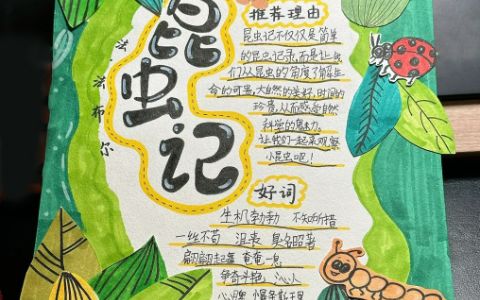 昆虫记
法 法布尔
推荐理由
昆虫记不仅仅是简单
的昆虫记录,而是让我
们从昆虫的角度了解生
命的可贵,大自然的美好,时间的
珍贵,从而感受自然
科学的魅力。
让我们一起来观察
小昆虫吧!
好词
生机勃勃 不知所措
一丝不苟 沮丧 臭名昭著
翩翩起舞 奄奄一息
争奇斗艳 沁人
心脾 慢条斯理